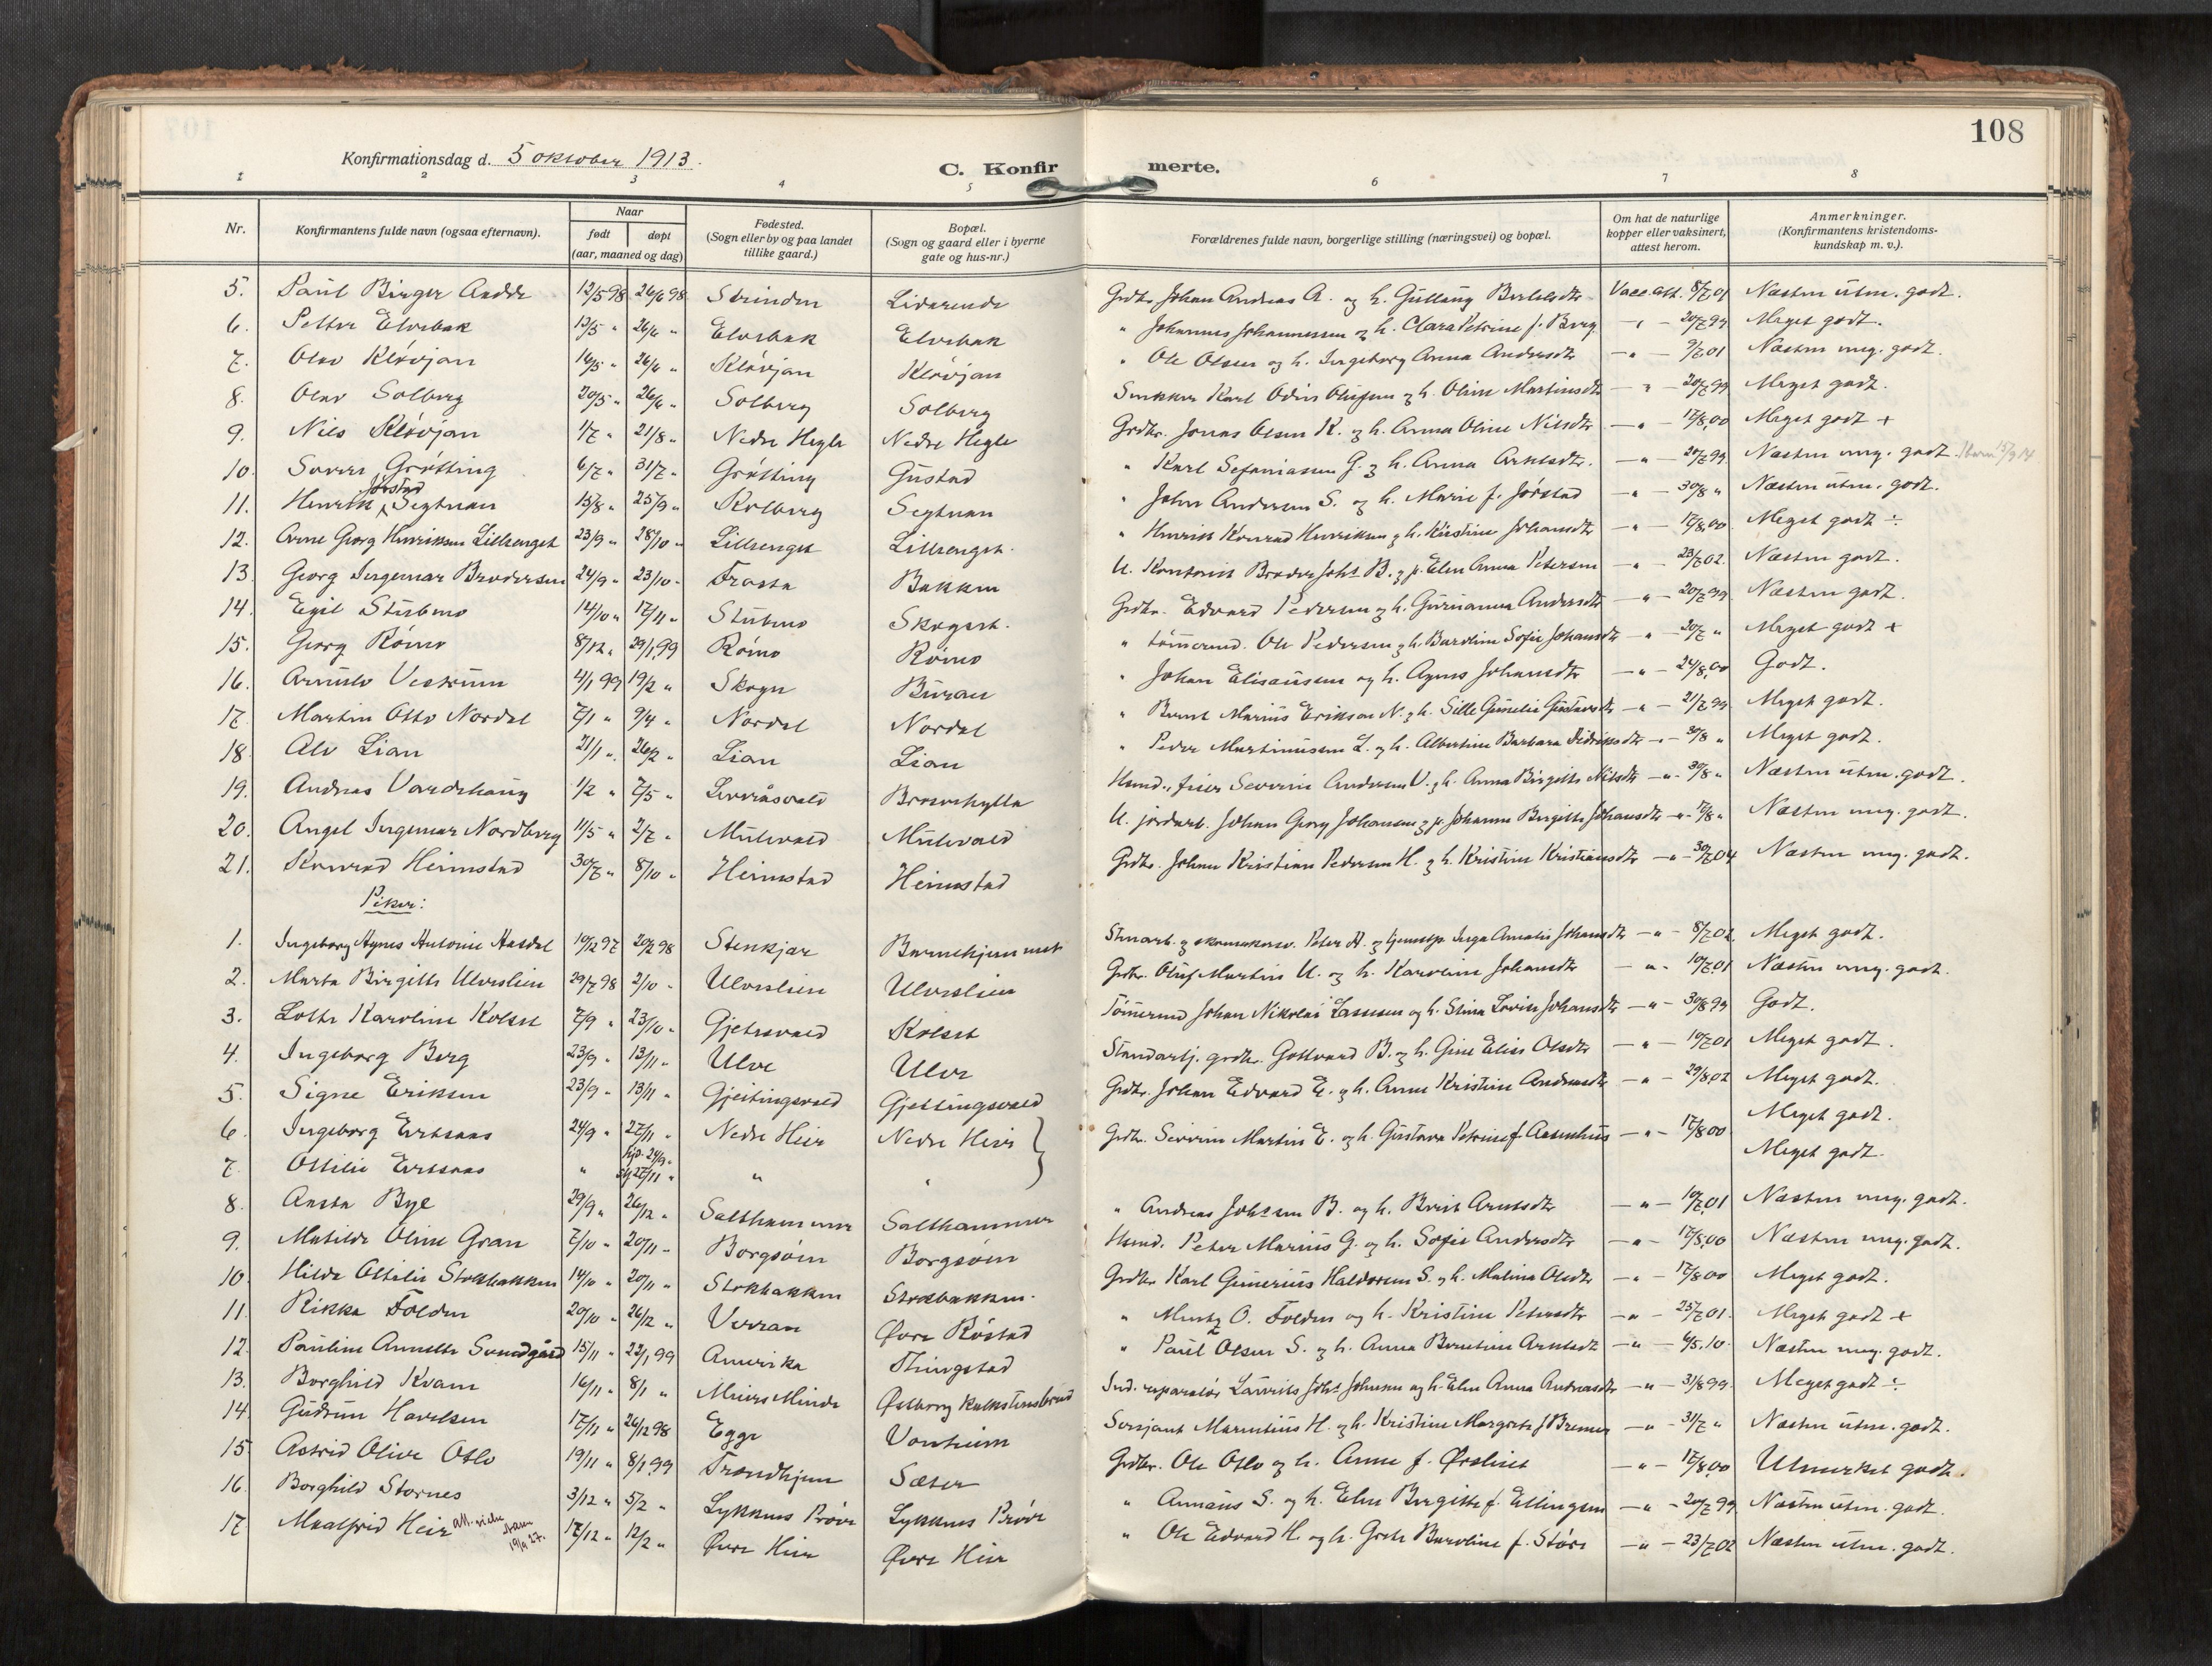 108
Konfirmationsdag d. 5 oktober 1913.
C. Konfirmerte.
1 2 3 4 5 6 7 8
Nr.
Konfirmantens fulde navn (ogsaa efternavn).
Naar
født døpt
(aar, maaned og dag)
Fødested.
(Sogn eller by og paa landet
tillike gaard.)
Bopæl.
(Sogn og gaard eller i byerne
gate og hus-nr.)
Forældrenes fulde navn, borgerlige stilling (næringsvei) og bopæl.
Om hat de naturlige
kopper eller vaksinert,
attest herom.
Anmerkninger.
(Konfirmantens kristendoms-
kundskap m. v.).
5. Paul Birger 12/5 98 26/6 98 Grdbr. Johan Andreas A. og h. Vacc. att. 8/7 01 Næsten utm. godt.
6. Petter Elvebak 13/5 " 26/6 " Elvebak Elvebak " Johannes Johannessen og h. Clara Petrine f. Berg - " - 20/7 99 Meget godt.
7. Olav Kløvjan 14/5 " 26/6 " Kløvjan Kløvjan " Ole Olsen og h. Ingeborg Anna Andersdtr - " - 9/7 01 Næsten meg. godt.
8. Olav Solberg 20/5 " 26/6 " Solberg Solberg Karl Odin Olufsen og h. Oline Martinsdtr - " - 20/7 99 Meget godt.
9. Nils Kløvjan 1/7 " 21/8 " Nedre Hegle Nedre Hegle Grdbr. Jonas Olsen K. og h. Anna Oline Nilsdtr - " - 17/8 00 Meget godt +
10. Sverre Grøtting 6/7 " 31/7 " Grøtting Gustad " Karl Sefaniassen G. og h. Anna - " - 20/7 99 Næsten meg. godt.
11. Henrik Jørstad Segtnan 15/8 " 25/9 " Kolberg Segtnan " John Andersen S. og h. Marie f. Jørstad - " - 30/8 " Næsten utm. godt.
12. Arne Georg Henriksen Lillsenget 23/9 " 28/10 " Lillsenget Lillsenget. " Henrik Konrad Henriksen og h. Kirstine Johansdtr - " - 17/8 00 Meget godt ÷
13. Georg Ingemar Brodersen 24/9 " 23/10 " Frosta Bakken U. Kontorist Broder Joh. B. og p. Elen Anna Petersen - " - 23/7 02. Næsten godt.
14. Egil Stubmo 14/10 " 17/11 " Stubmo Skogset. Grdbr. Edvard Pedersen og h. Gurianna Andersdtr - " - 20/7 99 Næsten godt.
15. Georg Römo 8/12 " 29/1 99 Römo Römo " tömmermd. Ole Pedersen og h. Berdine Sofie Johansdtr - " - 20/7 " Meget godt +
16. 4/1 99 19/2 " Skogn Buran " Johan Elisæusen og h. Agnes Johansdtr - " - 24/8 00 Godt.
17. Martin Otto Nordal 7/1 " 9/4 " Nordal Nordal " Bernt Marius Eriksen N. og h. Sille - " - 21/7 99 Meget godt.
18. Alv Lian 21/1 " 26/2 " Lian Lian " Peder Martinussen L. og h. Albertine Barbara Didriksdtr - " - 30/8 " Meget godt.
19. Andreas Vardehaug 1/2 " 7/5 " Husmd., fisker Severin Andersen V. og h. Anna Birgitte Nilsdtr - " - 30/8 " Næsten utm. godt.
20. Angel Ingemar Nordberg 11/5 " 2/7 " Mulevald Mulevald U. jordarb. Johan Georg Johansen og p. Johanna Birgitte Johansdtr - " - 17/8 " Næsten meg. godt.
21. Konrad Heimstad 30/7 " 8/10 " Heimstad Heimstad Grdbr. Johan Kristian Pedersen H. og h. Kristine Kristiansdtr - " - 30/7 04 Næsten meg. godt.
Piker:
1. Ingeborg Agnes Antonie Aasdal 19/12 97 20/2 98 Stenkjær Barnehjemmet Stenarb. og skomakersv. Peter A. og tjenestp. Inga Amalie Johansdtr - " - 8/7 02. Meget godt.
2. Marta Birgitte Ulveslien 29/7 98 2/10 " Ulveslien Ulveslien Grdbr. Oluf Martin U. og h. Karoline Johansdtr - " - 10/7 01 Næsten meg. godt.
3. Lotte Karoline Kolset 7/9 " 23/10 " Gjetesvald Kolset Tömmermd Johan Nikolai Lassesen og h. Stina Lovise Johansdtr - " - 30/8 99 Godt.
4. Ingeborg Berg 23/9 " 13/11 " Ulve Ulve Standartj. grdbr. Gottvard B. og h. Gine Elise Olsdtr - " - 10/7 01 Meget godt.
5. Signe Eriksen 23/9 " 13/11 " Gjeitingsvald Gjeitingsvald Grdbr. Johan Edvard E. og h. Anna Kristine Andreasdtr - " - 29/8 02 Meget godt.
6. Ingeborg Ertsaas 24/9 " 27/11 " Nedre Heir Nedre Heir Grdbr. Severin Martin E. og h. Gustava Petrine f. Aasenhus - " - 17/8 00 Meget godt.
7. Ottilie Ertsaas " hjd. 24/9 27/11 " " " Meget godt.
8. Aasta Bye 29/9 " 26/12 " Salthammer Salthammer " Andreas Johnsen B. og h. Berit Arntsdtr - " - 10/7 01 Næsten meg. godt.
9. Matilde Oline Gran 7/10 " 20/11 " Borgsöien Borgsöien Husmd. Peter Marius G. og h. Sofie Andersdtr - " - 17/8 00 Næsten meg. godt.
10. Hilda Ottilie Stokbakken 14/10 " 20/11 " Stokbakken Stokbakken. Grdbr Karl Gunerius Haldorsen S. og h. Malina Olsdtr - " - 17/8 00 Meget godt.
11. Rikka Folden 20/10 " 26/12 " Verran Øvre Röstad " O. Folden og h. Kristine Petersdtr - " - 25/7 01. Meget godt +
12. Pauline Annette Sundgård 15/11 " 22/1 99 Amerika Thingstad " Paul Olsen S. og h. Anna Berntine Arntsdt - " - 4/5.10. Næsten meg. godt.
13. Borghild Kvam 16/11 " 8/1 " Østborg Kalkstensbrud Ind. reparatör Laurits Joh. Johnsen og h. Elen Anna Andreasdtr - " - 31/8 99. Meget godt ÷
14. Gudrun Havelsen 17/11 " 26/12 98 Egge Vonheim Sersjant Marentius H. og h. Kristine Margrete f Bremer - " - 31/7 " Næsten utm. godt.
15. Astrid Olive Oslo 19/11 " 8/1 99 Trondhjem Sæter Grdbr. Ole Oslo og h. Anne f. Øvsliset - " - 17/8 00 Utmerket godt.
16. Borghild Stornes 3/12 " 5/2 " Lykkens Pröve Lykkens Pröve " Annæus S. og h. Elen Birgitte f. Ellingsen - " - 20/7 99. Næsten utm. godt.
17. Maalfrid Heir 17/12 " 12/2 " Øvre Heir Øvre Heir " Ole Edvard H. og h. Grete Baroline f. Störe - " - 23/7 02 Næsten utm. godt.